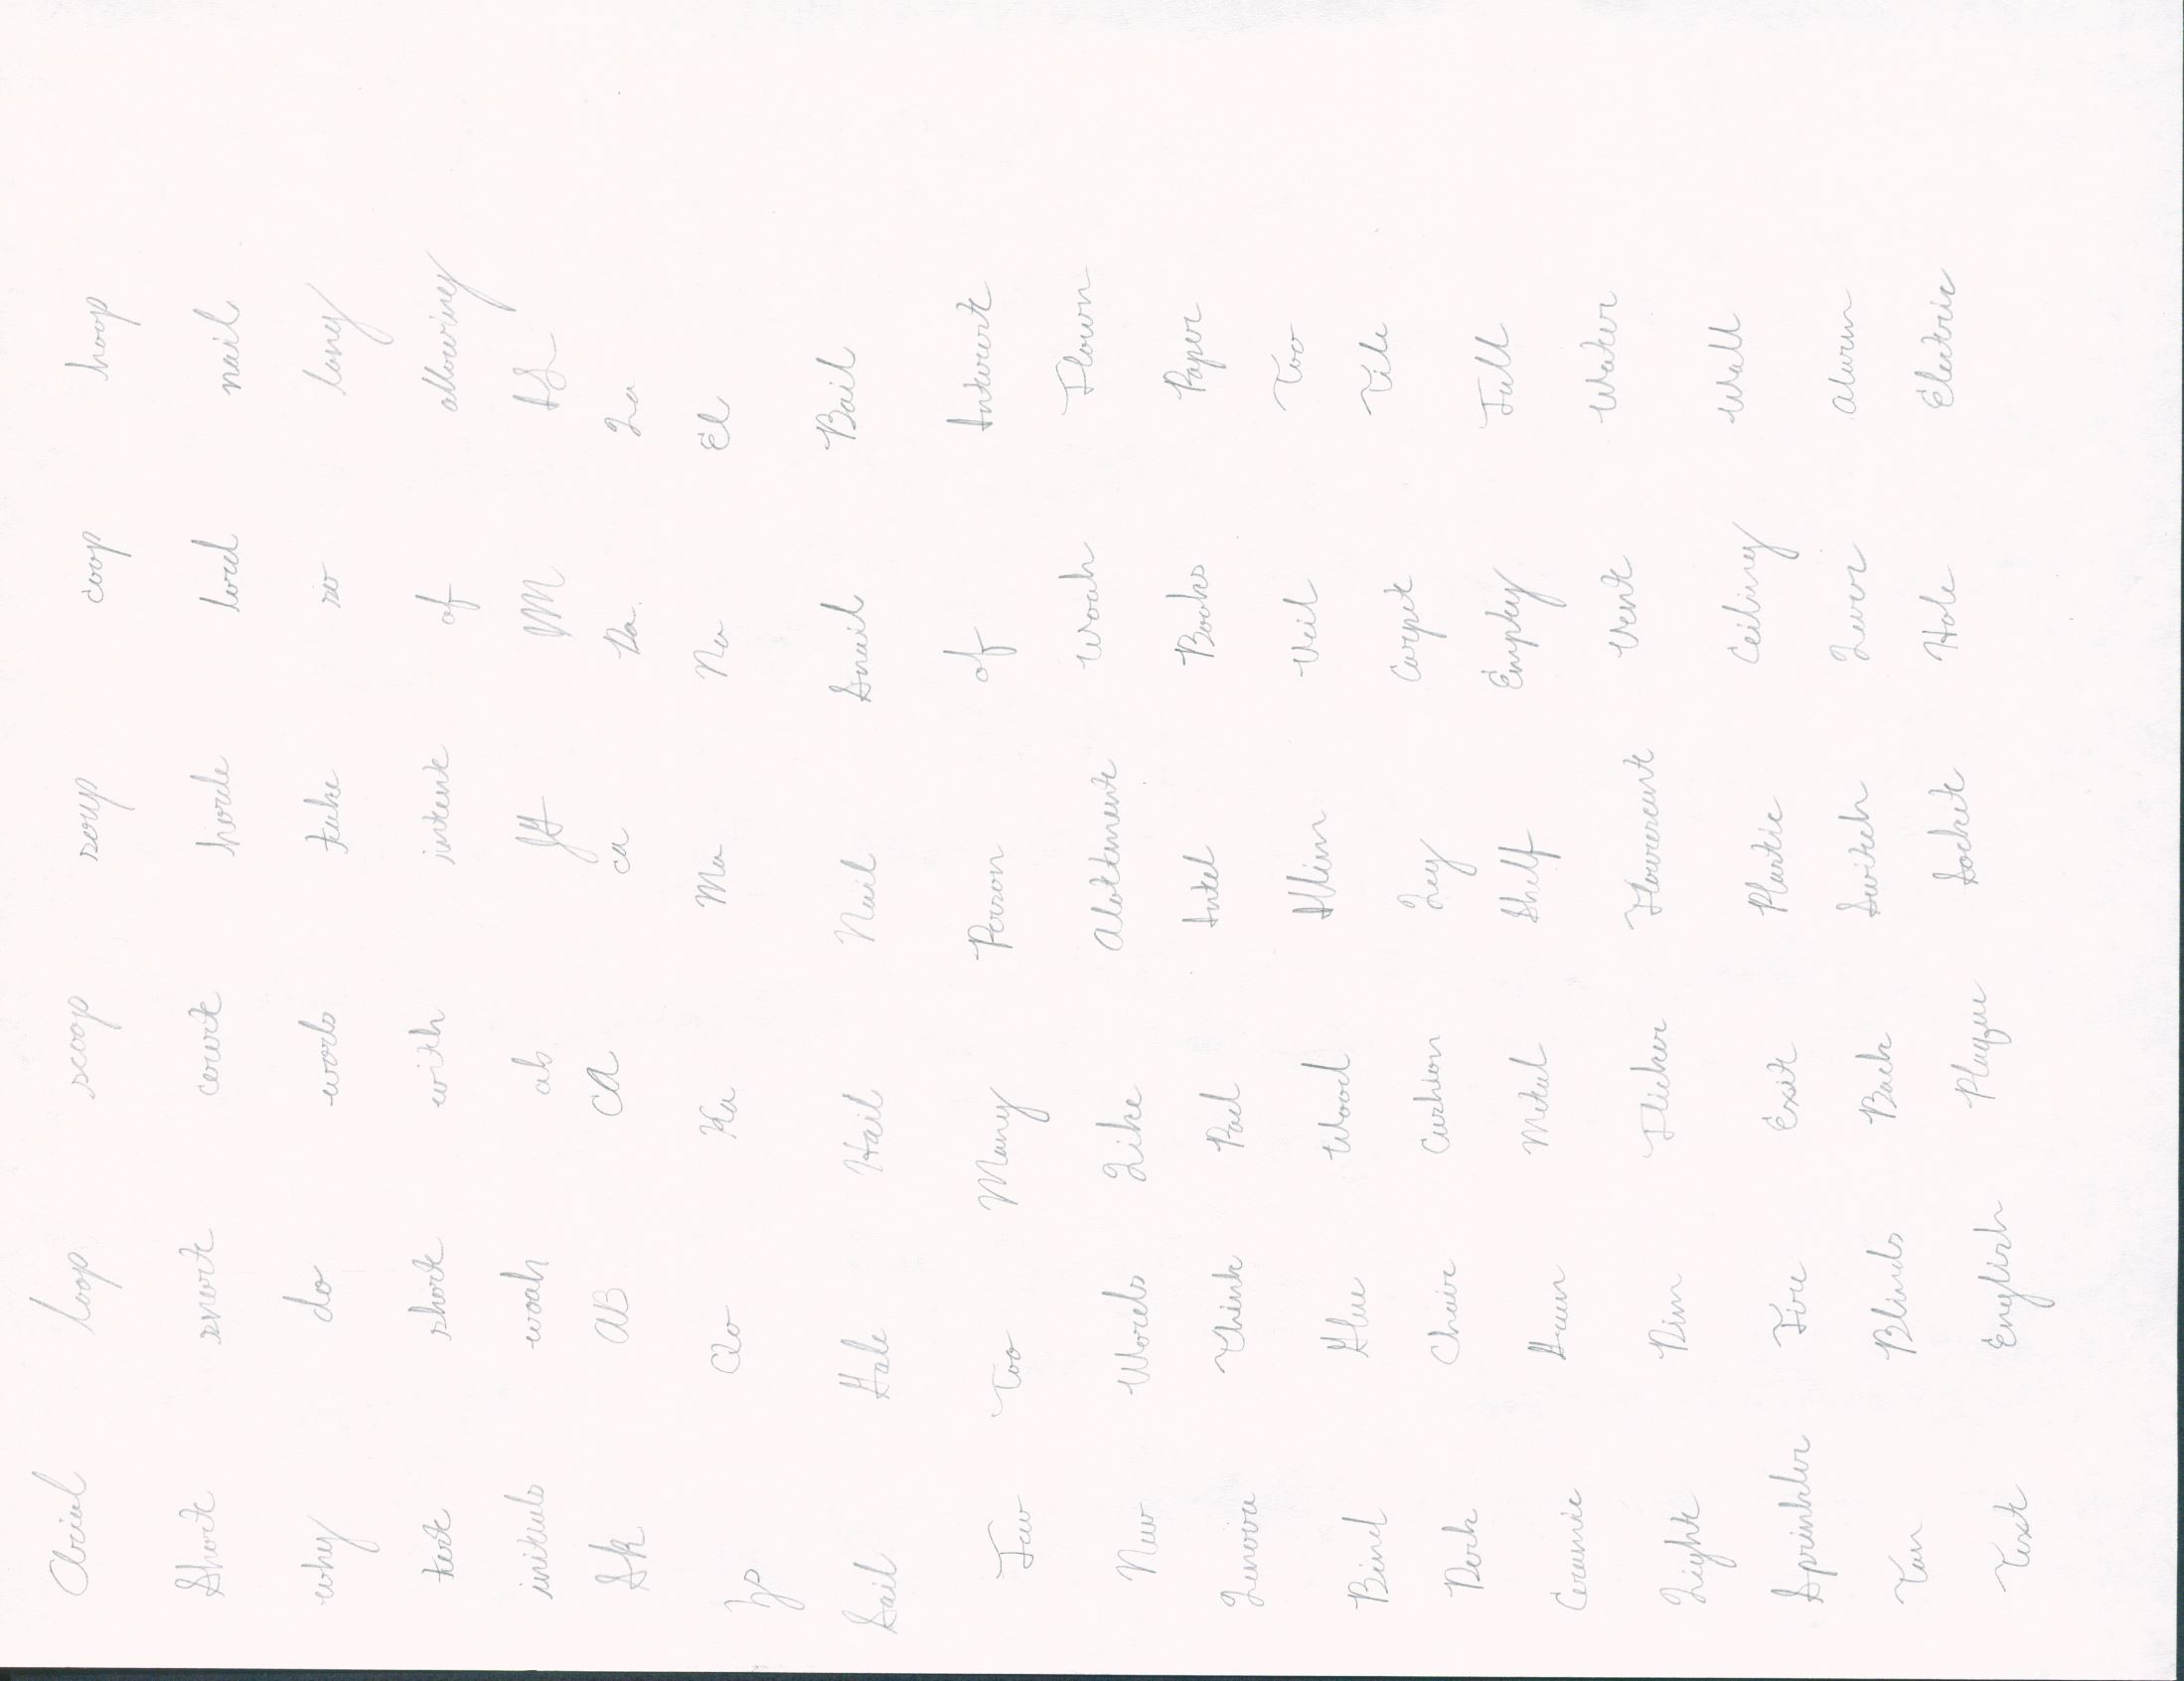 Arial loop scoop soup coop hoop
Short snort court horde lord nail
why do words take so long
test short with intent of allowing
initials woah ah JH JM
Sk AB CA ca Da La
yp Ao Ka Ma No El
Sail Gale Hail Nail Snail Bail
Few Too Many Person of
New Words Like Alottment Woah Flown
Lenova Think Pad Intel Books Paper
Bind Glue Wood Veil Too
Desk Chair Cushion Leg Carpet Tile
Ceramic Green Metal Shelf Empty Full
Light Dim Flicker Flourescent Vent Water
Sprinkler Fire Exit Plastic Ceiling Wall
Tan Blinds Back Switch Lever Alarm
Text English Plaque Socket Hole Electric